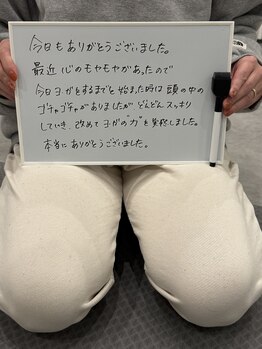 今日もありがとうございました。
最近 心のモヤモヤがあったので
今日ヨガをするまでと始まった時は 頭の中の
ゴチャゴチャがありましたが どんどん スッキリ
していき、改めて ヨガの"力"を実感しました。
本当に ありがとうございました。